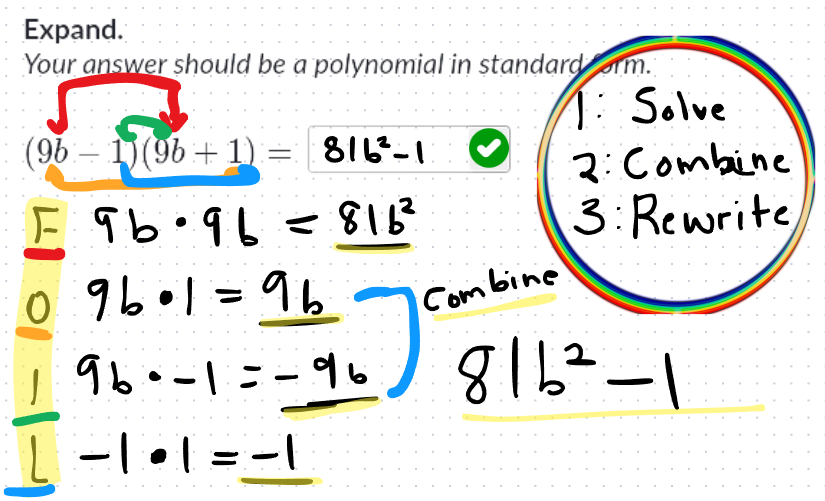 Expand.
Your answer should be a polynomial in standard form.
(9b − 1)(9b + 1) = 81b²-1
1: Solve
2: Combine
3: Rewrite
F 9b • 9b = 81b²
O 9b • 1 = 9b
Combine
I 9b • -1 = -9b
81b² - 1
L -1 • 1 = -1